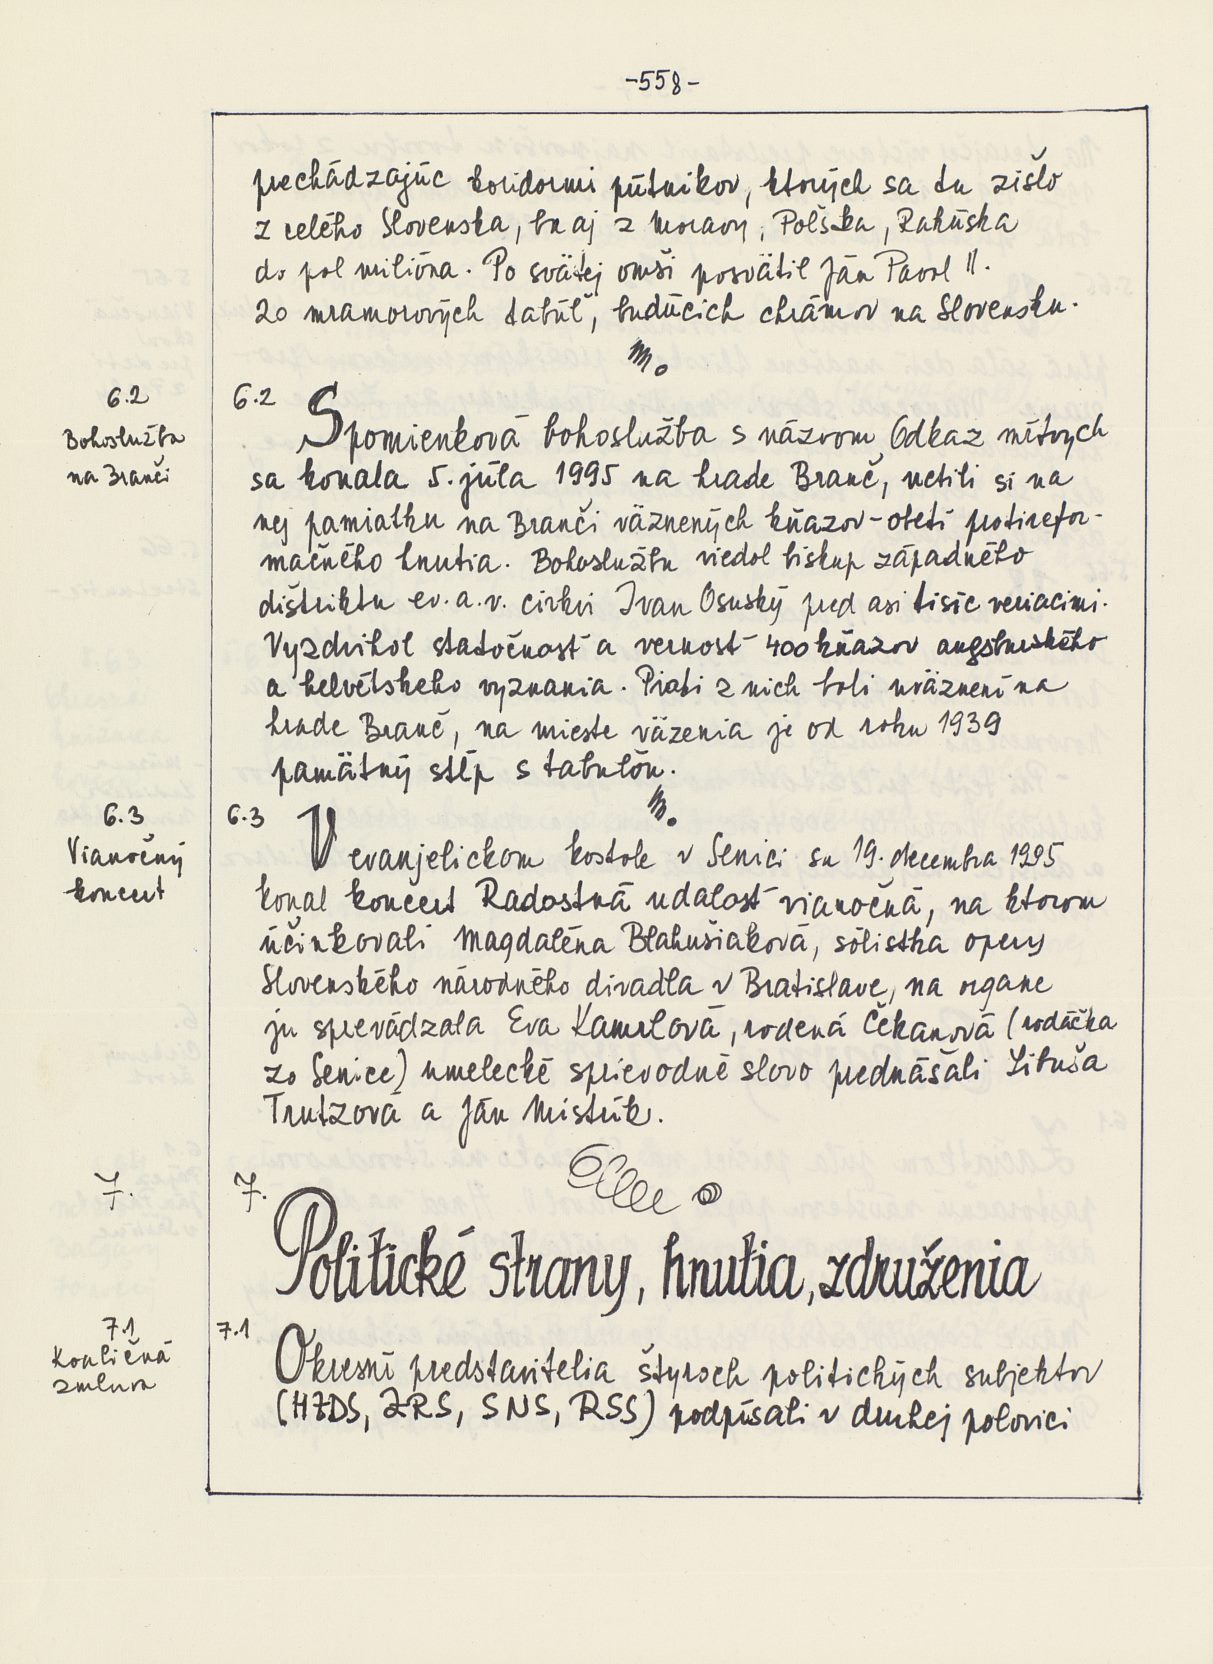 -558-
prechádzajúc koridormi pútnikov, ktorých sa tu zišlo
z celého Slovenska, bu aj z Moravy, Poľska, Rakúska
do pol milióna. Po svätej omši posvätil Ján Pavol II.
20 mramorových tabúľ, budúcich chrámov na Slovensku.
6.2
Bohoslužba
na Branči
6.2 Spomienková bohoslužba s názvom Odkaz mŕtvych
sa konala 5. júla 1995 na hrade Branč, uctili si na
nej pamiatku na Branči väznených kňazov - obetí protirefor-
mačného hnutia. Bohoslužbu viedol biskup západného
dištriktu ev. a. v. cirkvi Ivan Osuský pred asi tisíc veriacimi.
Vyzdvihol statočnosť a vernosť 400 kňazov augsburského
a helvétskeho vyznania. Piati z nich boli uväznení na
hrade Branč, na mieste väzenia je od roku 1939
pamätný stĺp s tabuľou.
6.3
Vianočný
koncert
6.3 V evanjelickom kostole v Senici sa 19. decembra 1995
konal koncert Radostná udalosť vianočná, na ktorom
účinkovali Magdaléna Blahušiaková, sólistka opery
Slovenského národného divadla v Bratislave, na organe
ju sprevádzala Eva Kamrlová, rodená Čekanová (rodáčka
zo Senice) umelecké sprievodné slovo prednášali Libuša
Trutzová a Ján Mistrík.
7.
7.
Politické strany, hnutia, združenia
7.1
Koaličná
zmluva
7.1 Okresní predstavitelia štyroch politických subjektov
(HZDS, ZRS, SNS, RSS) podpísali v druhej polovici